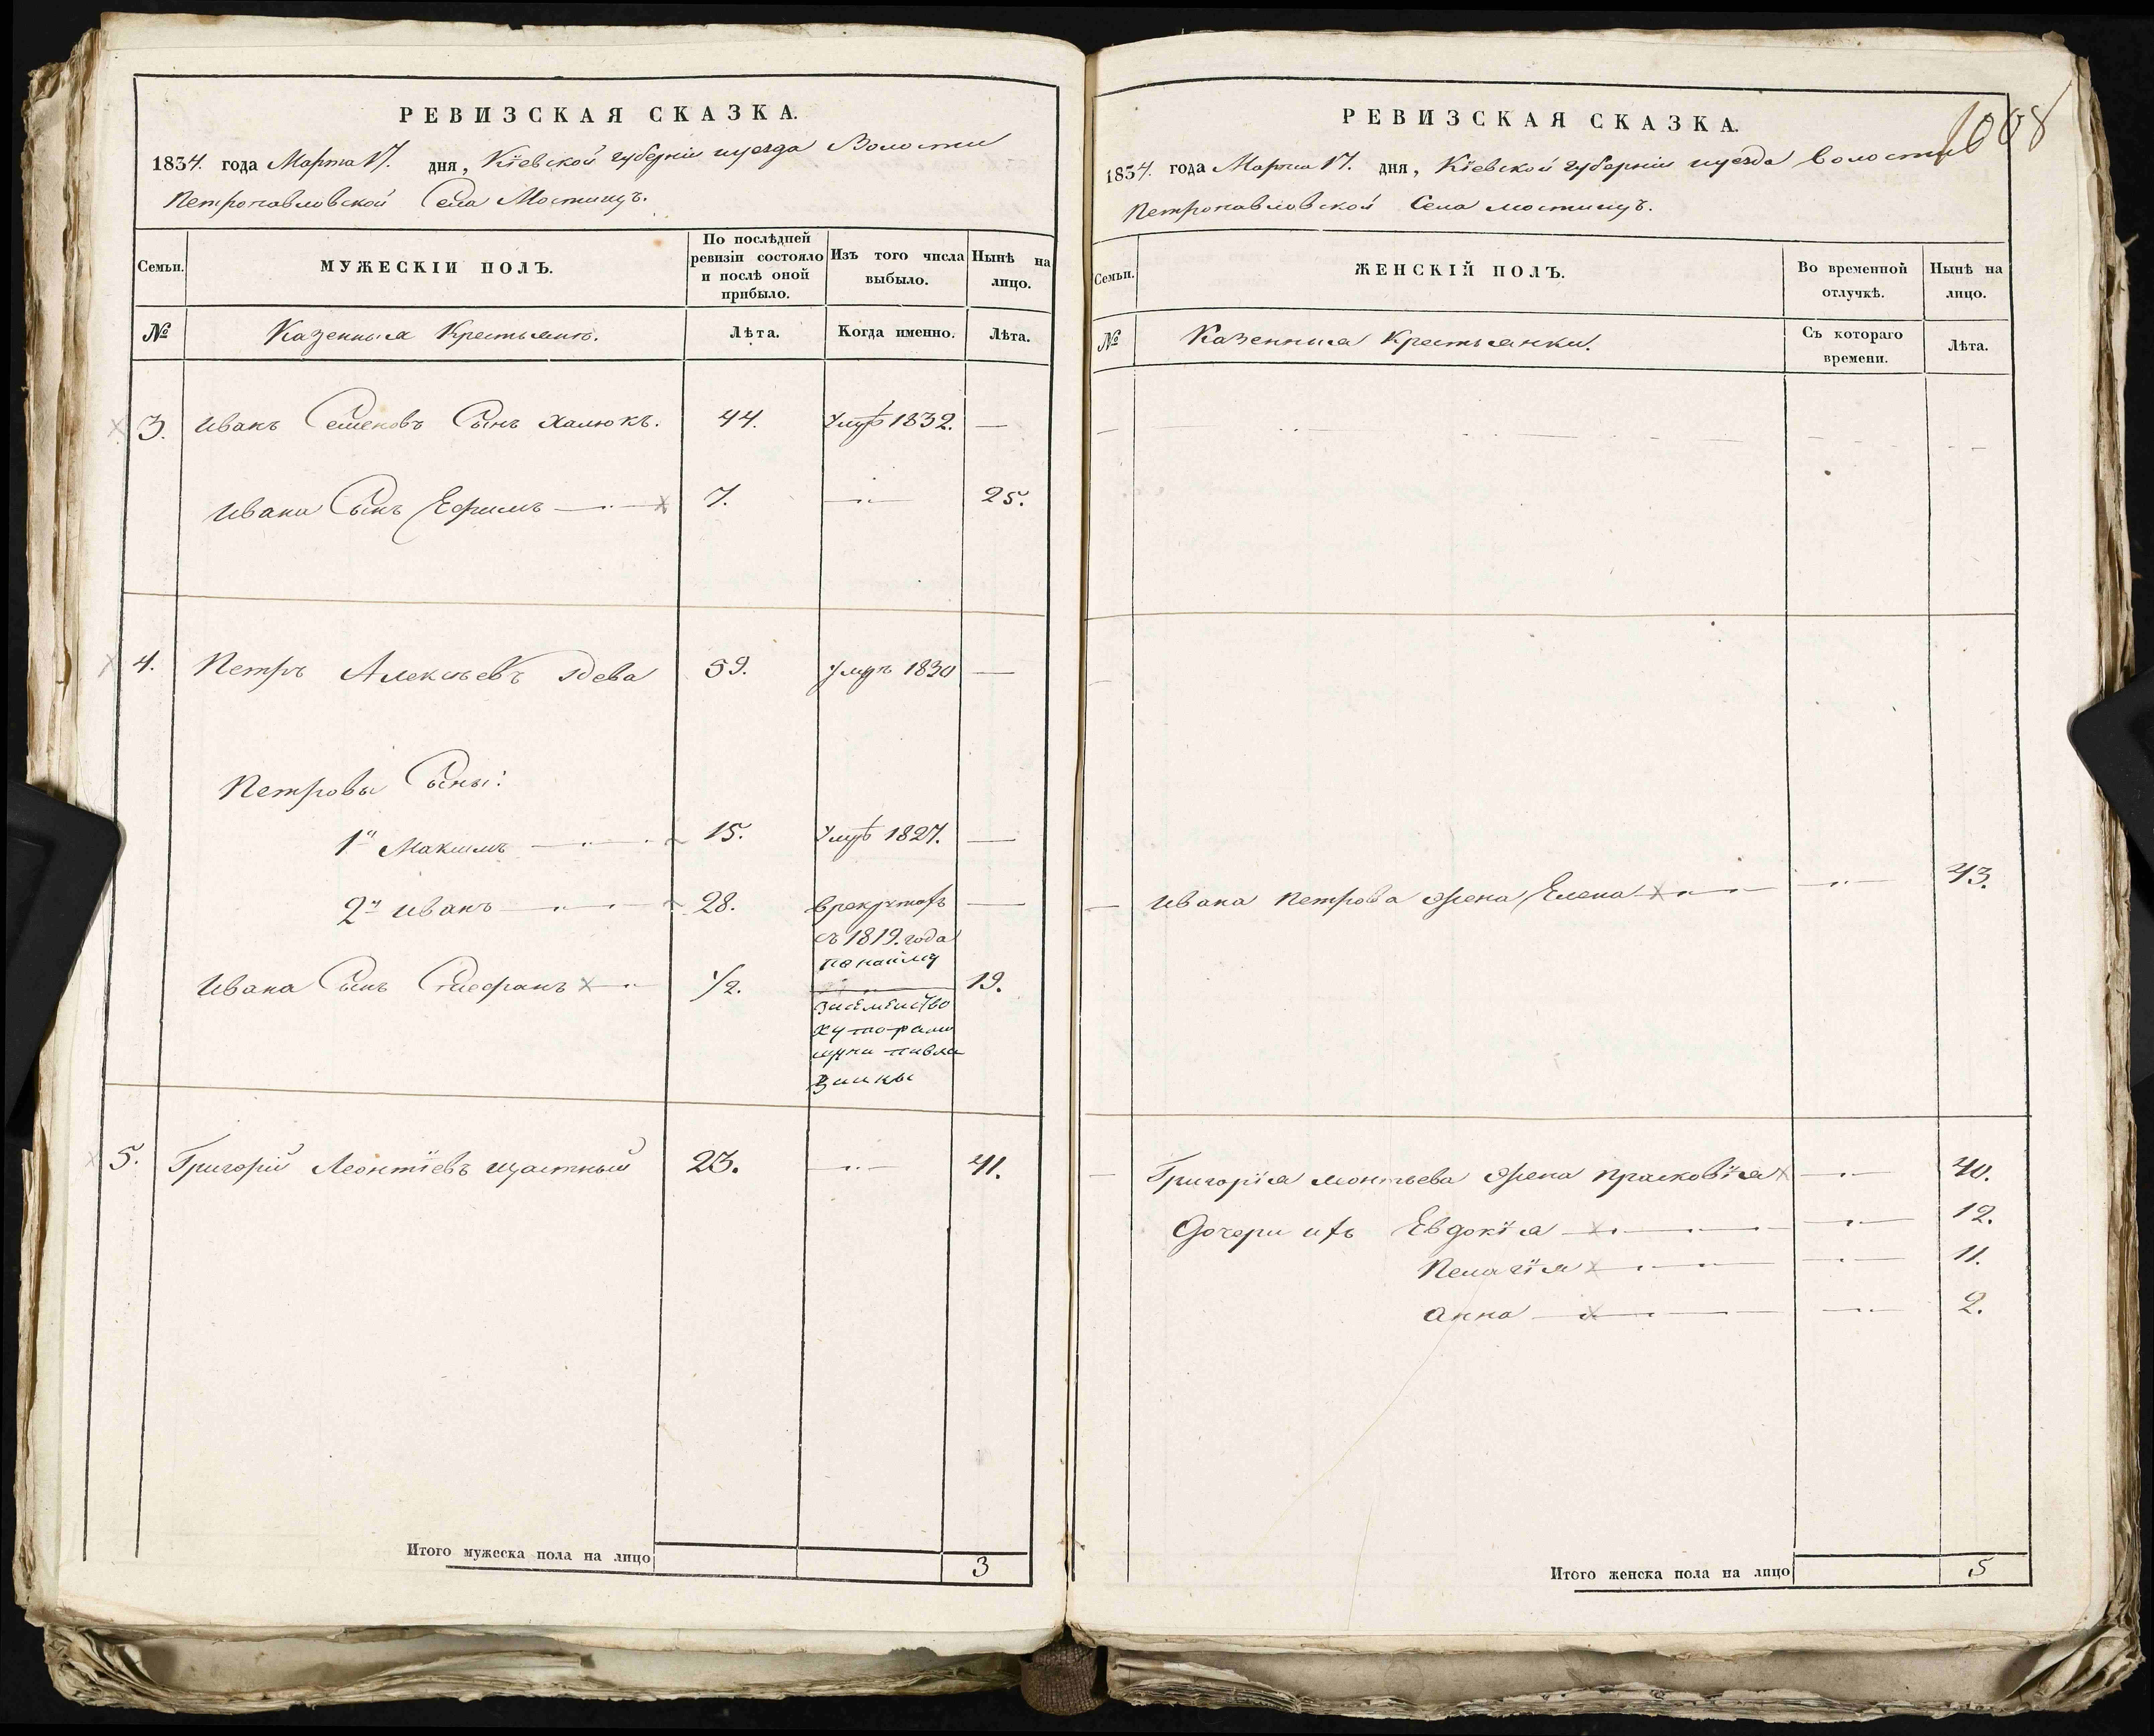 РЕВИЗСКАЯ СКАЗКА.
1834. года Марта 17. дня, Кіевской губерніи и уезда Волости
Петропавловской Села Мостищъ.
Семьи.
МУЖЕСКІИ ПОЛЪ.
По послѣдней ревизіи состояло и послѣ оной прибыло.
Изъ того числа выбыло.
Нынѣ на лицо.
№
Казенныя Крестьяне.
Лѣта.
Когда именно.
Лѣта.
3. Иванъ Семеновъ Сынъ Халюкъ. 44. Умръ 1832. —
Ивана Сынъ Ефимъ 7. — 25.
4. Петръ Алексѣевъ 59. умръ 1830 —
Петровы Сыны:
1й Максимъ 15. Умръ 1827. —
2й Иванъ 28. в рекрутахъ —
съ 1819. года
по найму
Ивана Сынъ Стефанъ 1/2. 19.
5. Григорій Леонтіевъ Щастный 23. — 41.
Итого мужеска пола на лицо 3
1008
РЕВИЗСКАЯ СКАЗКА.
1834. года Марта 17. дня, Кіевской губерніи и уезда Волости
Петропавловской Села Мостищъ.
Семьи.
ЖЕНСКІЙ ПОЛЪ.
Во временной отлучкѣ.
Нынѣ на лицо.
№
Казенныя Крестьянки.
Съ котораго времени.
Лѣта.
— Ивана Петрова Жена Елена — 43.
— Григорія Леонтьева Жена Прасковія — 40.
Дочери ихъ Евдокія — 12.
Пелагія — 11.
Анна — 2.
Итого женска пола на лицо 5